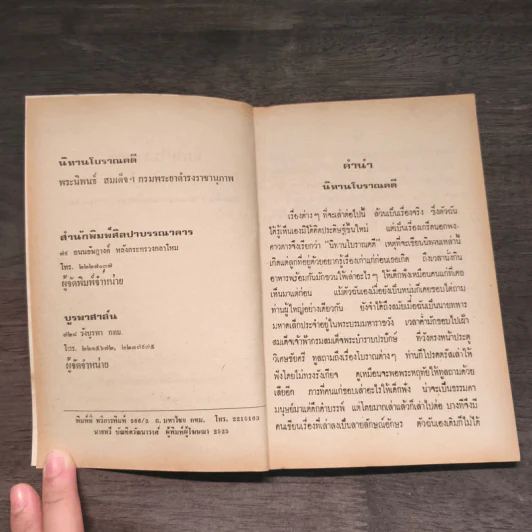 นิทานโบราณคดี
พระนิพนธ์ สมเด็จฯ กรมพระยาดำรงราชานุภาพ
สำนักพิมพ์ศิลปาบรรณาคาร
ถนนอัษฎางค์ หลังกระทรวงกลาโหม
โทร.
ผู้จัดพิมพ์จำหน่าย
บูรพาสาส์น
วังบูรพา กทม.
โทร.
ผู้จัดจำหน่าย
พิมพ์ที่ ทวีการพิมพ์ ถ. มหาไชย กทม. โทร. 2215163
ผู้พิมพ์ผู้โฆษณา 2523
คำนำ
นิทานโบราณคดี
เรื่องต่างๆ ที่จะเล่าต่อไปนี้ ล้วนเป็นเรื่องจริง ซึ่งตัวฉัน
ได้รู้เห็นเองมิได้คิดประดิษฐ์ขึ้นใหม่ แต่เป็นเรื่องเกร็ดนอกพง-
ศาวดารจึงเรียกว่า "นิทานโบราณคดี" เหตุที่จะเขียนนิทานเหล่านี้
เกิดแต่ลูกที่อยู่ด้วยอยากรู้เรื่องเก่าแก่ก่อนเธอเกิด ถึงเวลานั่งกิน
อาหารพร้อมกันมักชวนให้เล่าอะไรๆ ให้เด็กฟังเหมือนคนแก่ที่เคย
เห็นมาแต่ก่อน แม้ตัวฉันเองเมื่อยังเป็นหนุ่มก็เคยชอบไต่ถาม
ท่านผู้ใหญ่อย่างเดียวกัน ยังจำได้ถึงสมัยเมื่อฉันเป็นนายทหาร
มหาดเล็กประจำอยู่ในพระบรมมหาราชวัง เวลาค่ำมักชอบไปเฝ้า
สมเด็จเจ้าฟ้ากรมสมเด็จพระบำราบปรปักษ์ ที่วังตรงหน้าประตู
วิเศษชัยศรี ทูลถามถึงเรื่องโบราณต่างๆ ท่านก็โปรดตรัสเล่าให้
ฟังโดยไม่ทรงรังเกียจ ดูเหมือนจะพอพระหฤทัยให้ทูลถามด้วย
เสียอีก การที่คนแก่ชอบเล่าอะไรให้เด็กฟัง น่าจะเป็นธรรมดา
มนุษย์มาแต่ดึกดำบรรพ์ แต่โดยมากเล่าแล้วก็แล้วไป บางทีจึงมี
คนเขียนเรื่องที่เล่าลงเป็นลายลักษณ์อักษร ตัวฉันเองเดิมก็ไม่ได้